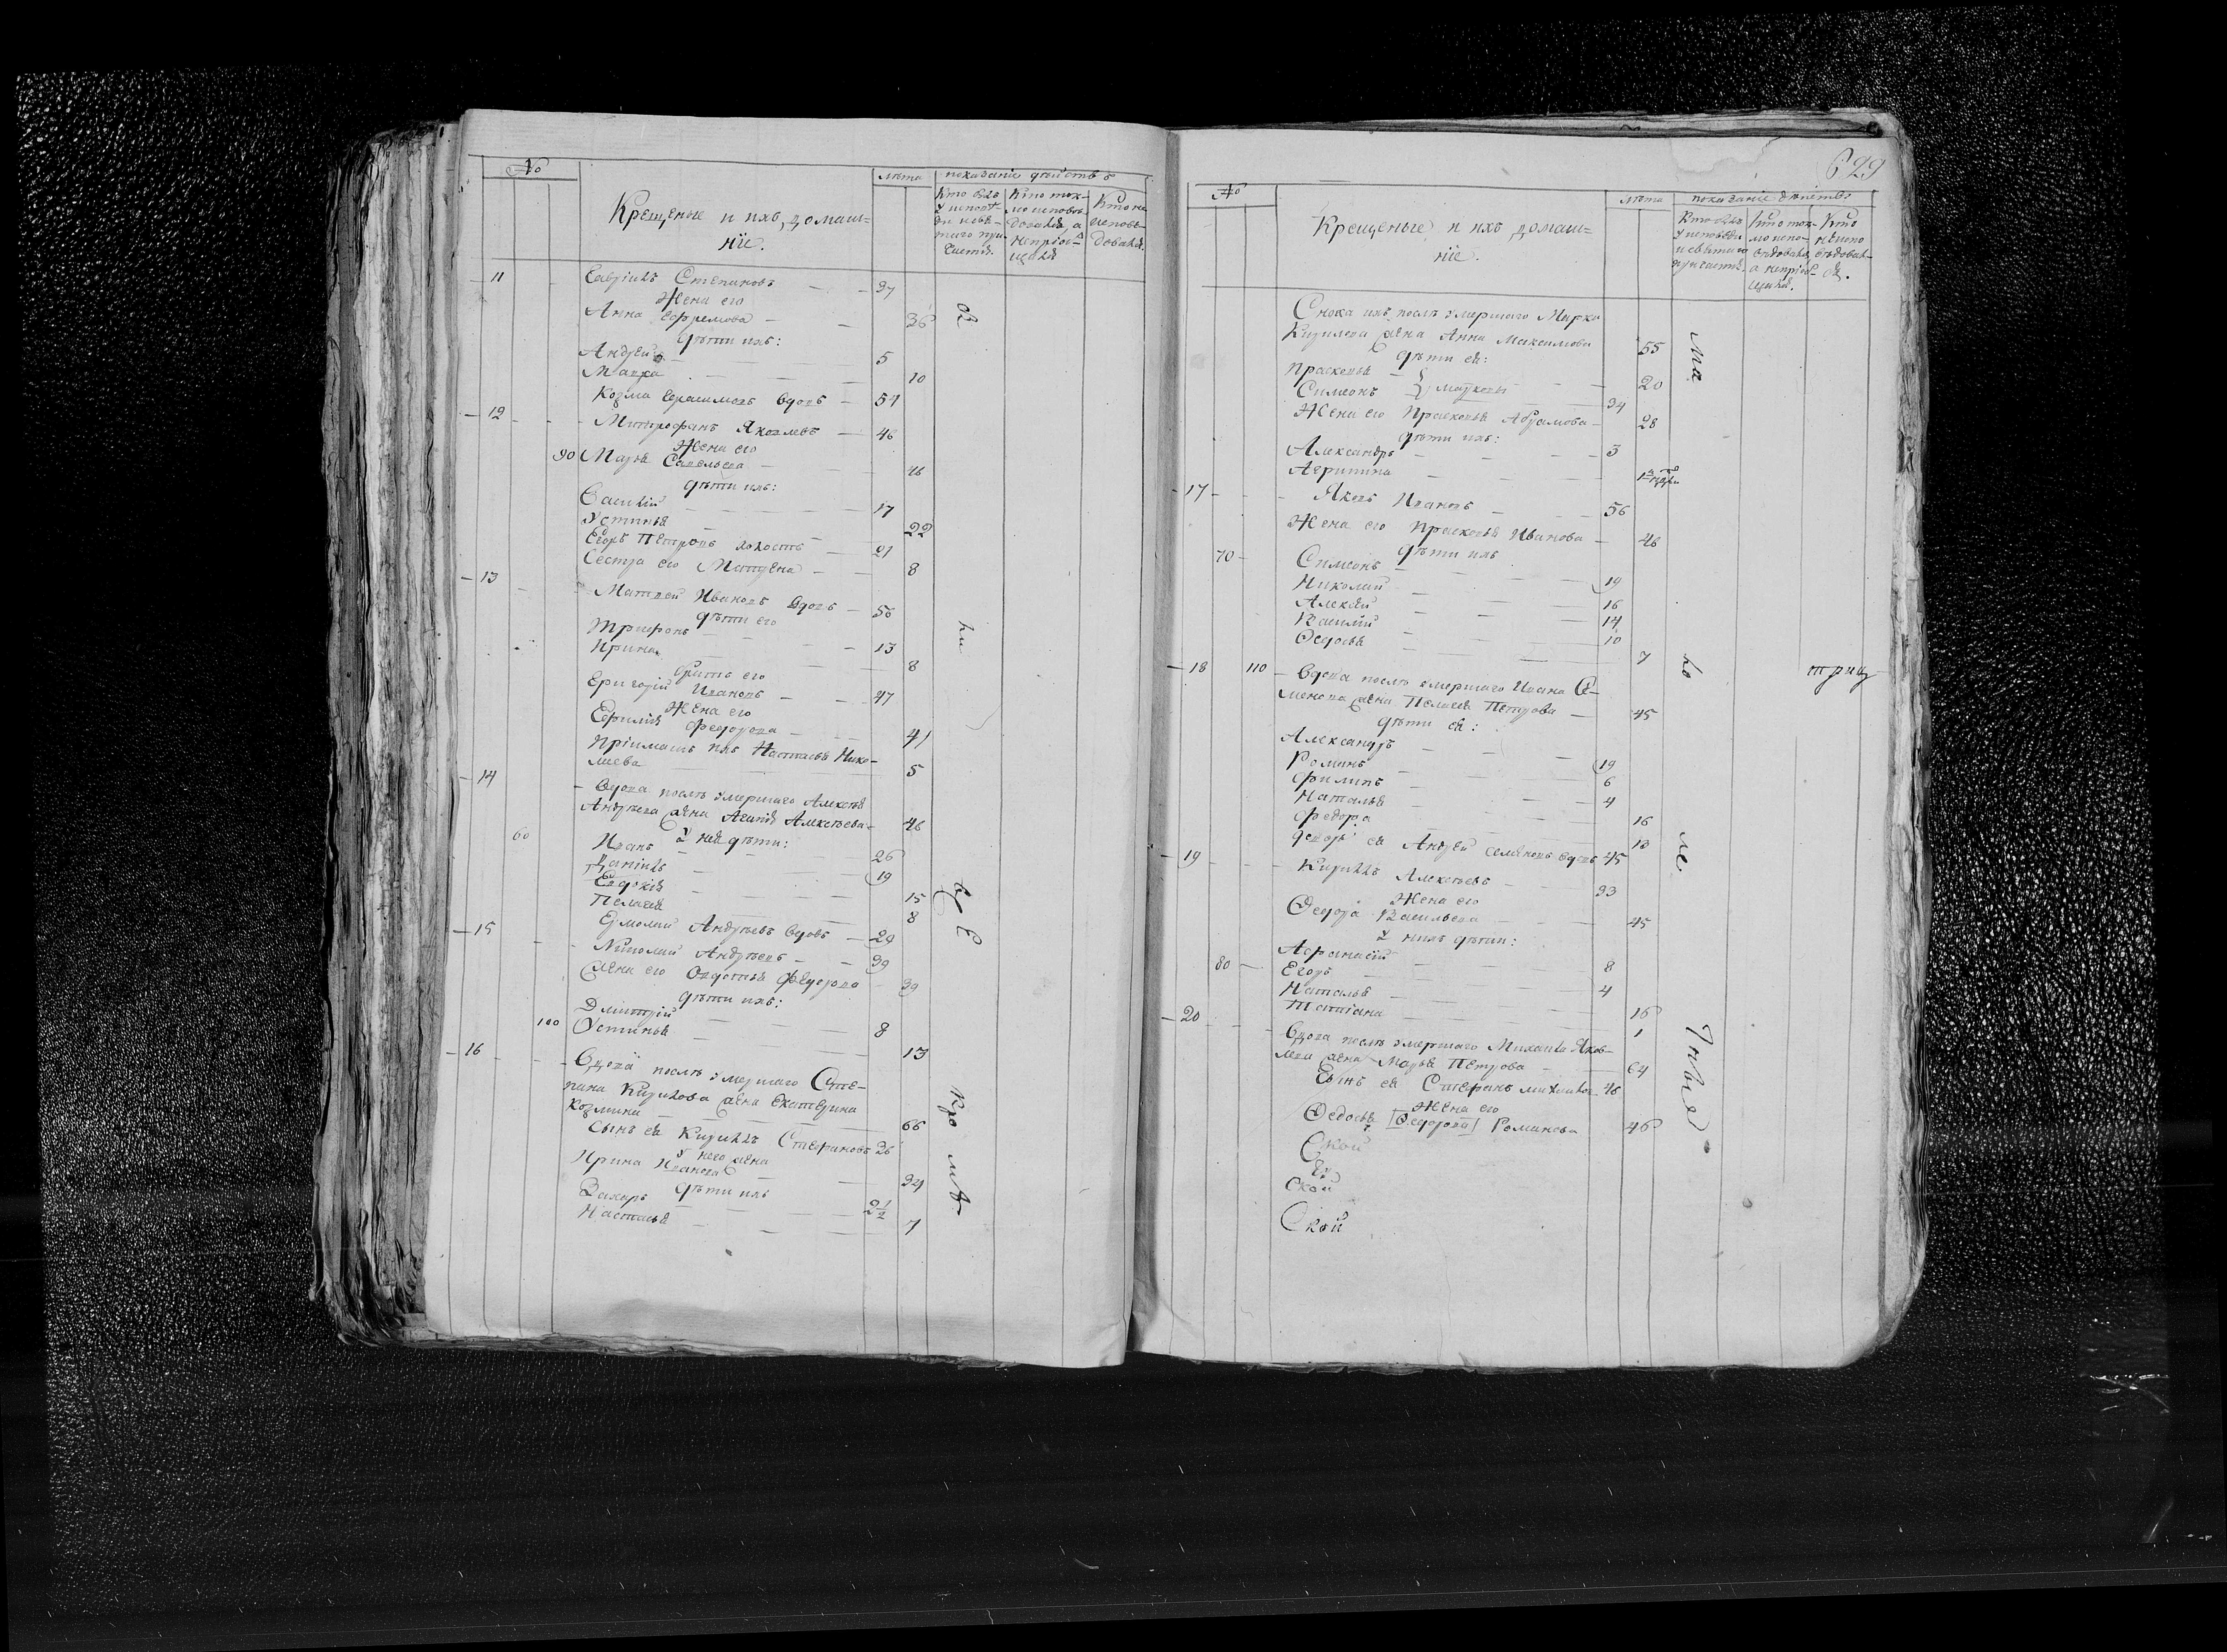 №
Крещеные и ихъ домаш=
нїе.
лѣта
показанїе дѣйствъ
Кто былъ
у исповѣ-
ди и свя-
таго при-
частія.
Кто ток-
мо исповѣ-
довался, а
непріоб-
щался
Кто не
исповѣ-
довался.
11 Гавріилъ Степановъ 37
Жена его
Анна Ефремова 36
дѣти ихъ:
Андрей 5
Мавра 10
Козма Герасимовъ вдовъ 51
12 Митрофанъ Яковлевъ 46
Жена его
90 Марья Савельева 46
дѣти ихъ:
Василій 17
Устинья 22
Егоръ Петровъ холостъ 21
Сестра его Матрена 8
13 Матвей Ивановъ вдовъ 56
дѣти его
Трифонъ 13
Ирина 8
братъ его
Григорій Ивановъ 47
Жена его
Ефимія Федорова 41
Пріимышъ ихъ Настасья Нико-
лаева 5
14 Вдова послѣ умершаго Алексѣя
Андрѣева жена Агапія Алексѣева 46
у нея дѣти:
60 Иванъ 26
Даніилъ 19
Евдокія 15
Пелагея 8
Ермолай Андрѣевъ вдовъ 29
15 Николай Андрѣевъ 39
жена его Авдотья Федорова 39
дѣти ихъ:
Дмитрій 8
100 Устинья 13
16 Вдова послѣ умершаго Сте-
пана Кирилова жена Екатерина
Козмина 66
Сынъ ея Кирилъ Стефановъ 26
у него жена
Ирина Иванова 34
дѣти ихъ
Захаръ 2½
Настасья 7
629
№
Крещеные и ихъ домаш=
нїе.
лѣта
показанїе дѣйствъ
Кто былъ
у исповѣди
и святаго
причастія.
Кто ток-
мо испо-
вѣдовался,
а непріоб-
щался.
Кто
неиспо
вѣдовал-
ся.
Сноха ихъ послѣ умершаго Марка
Кирилова жена Анна Максимова 55
дѣти ея:
Прасковья 20
Симеонъ Марковы 34
Жена его Прасковья Абрамова 28
дѣти ихъ:
Александръ 3
Агрипина
17 Яковъ Ивановъ 56
Жена его Прасковья Иванова 46
дѣти ихъ
70 Симеонъ 19
Николай 16
Алексѣй 14
Василій 10
Федосья 7
18 110 Вдова послѣ умершаго Ивана Се-
менова жена Пелагея Петрова 45
дѣти ея:
Александръ 19
Романъ 6
Филипъ 4
Наталья 16
Федора 13
деверь ея Андрей Семеновъ вдовъ 45
19 Кирилъ Алексѣевъ 33
Жена его
Федора Васильева 45
у нихъ дѣти:
Афанасій 8
80 Егоръ 4
Наталья 16
Татіана 1
20 Вдова послѣ умершаго Михаила Яков-
лева жена Марья Петрова 64
Сынъ ея Стефанъ Михайловъ 46
Жена его
Федосья [Федорова] Романова 46
Ской
Ской
Ской